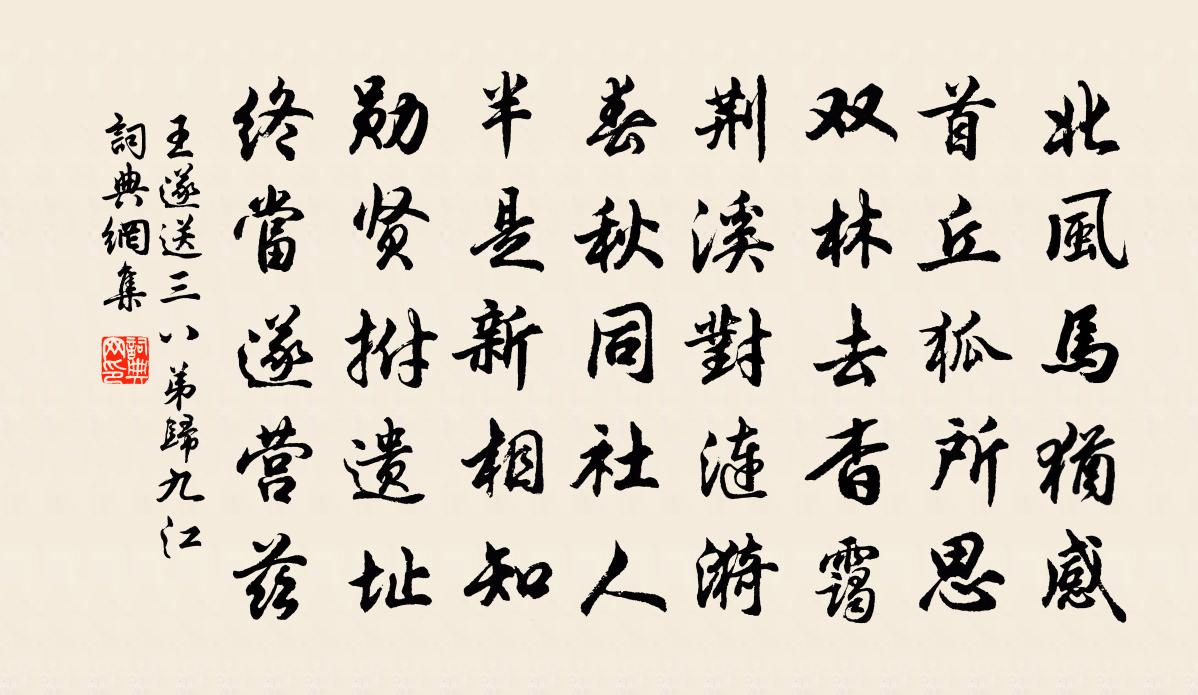 北風馬猶感
首丘狐所思
双林去杳靄
荆溪對漣漪
春秋同社人
半是新相知
勋贤拊遗址
终當遂营茲
王遂送三八弟歸九江
詞典網集
詞典网印